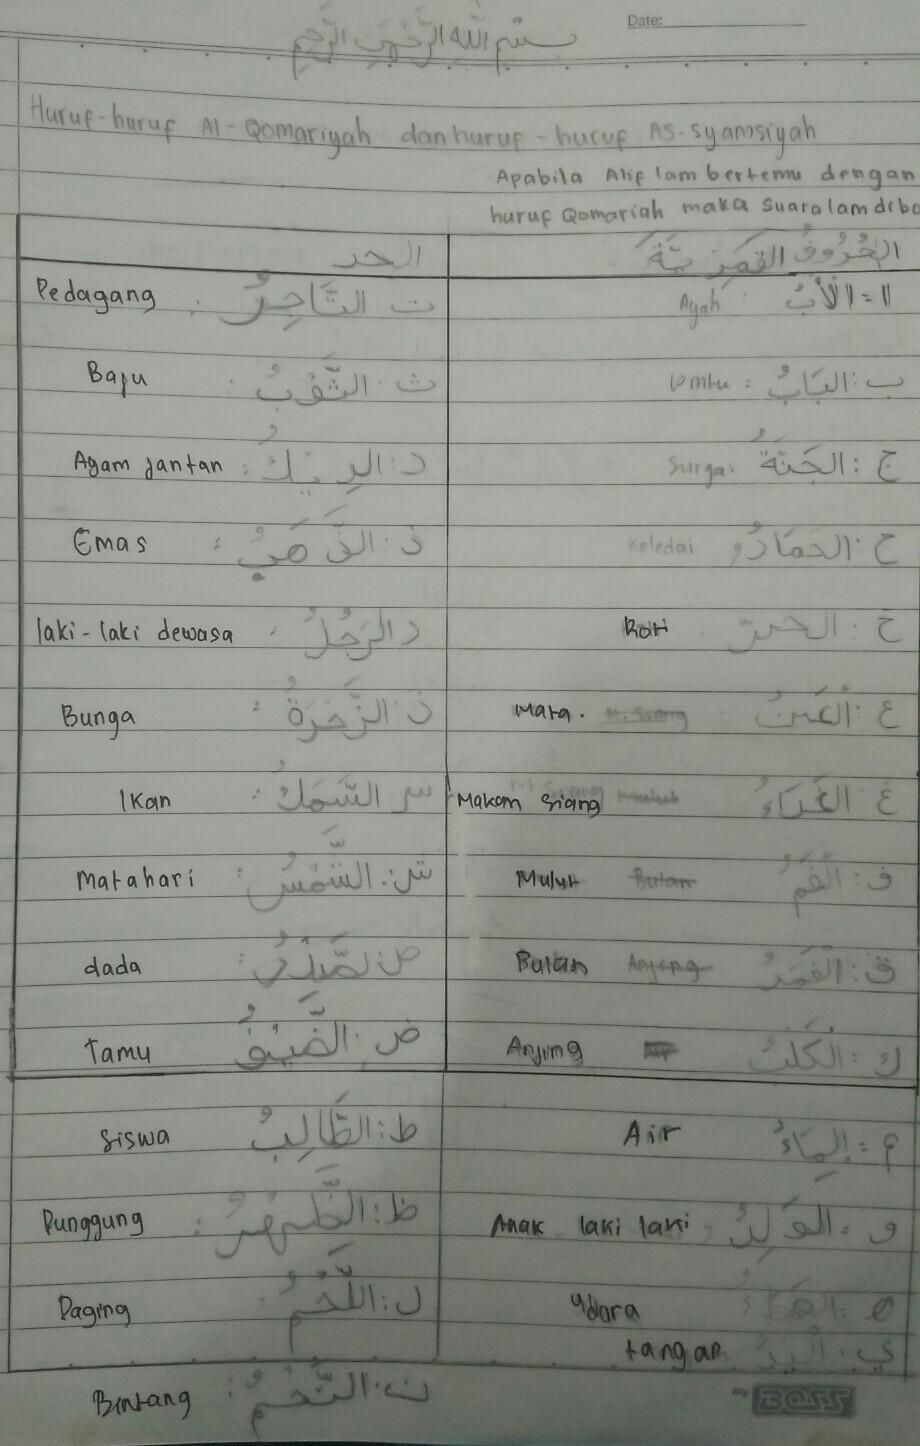 Date:
بسم الله الرحمن الرحيم
Huruf-huruf Al-Qomariyah dan huruf-huruf AS-syamsiyah
Apabila Alif lam bertemu dengan
huruf Qomariah maka suara lam diba
الحُرُوفُ القَمَرِيَّةُ
ا = الْأَبُ : Ayah
ب : البَابُ : Pintu
ج : الجَنَّةُ : Surga
ح : الحِمَارُ Keledai
خ : Roti
ع : الْعَيْنُ Mata.
غ : الغَدَاءُ Makam Siang
ف : الْفَمُ Mulut
ق : الْقَمَرُ Bulan
ك : الْكَلْبُ Anjing
م : المَاءُ Air
و : الوَلَدُ Anak laki laki
ه : Udara
ي : الْيَدُ tangan
الحر
ت التَّاجِرُ : Pedagang
ث : الثَّوْبُ : Baju
د : الدِيكُ : Ayam jantan
ذ : الذَّهَبُ : Emas
ر الرَّجُلُ : laki-laki dewasa
ز : الزَّهْرَةُ : Bunga
س السَّمَكُ : Ikan
ش : الشَّمْسُ : Matahari
ص لصَّدْرُ : dada
ض : الضَّيْفُ Tamu
ط : الطَّالِبُ Siswa
ظ : الظَّهْرُ : Punggung
ل : اللَّحْمُ Daging
ن : النَّجْمُ : Bintang
BOSS